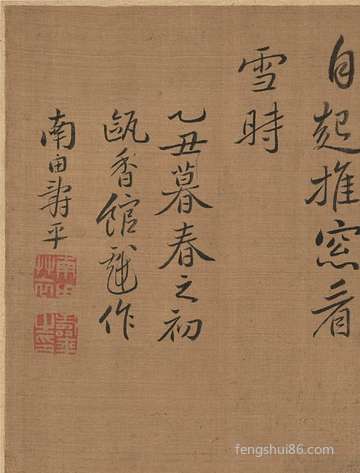 自起推窓看
雪時
乙丑暮春之初
甌香館戲作
南田壽平
fengshui86.com